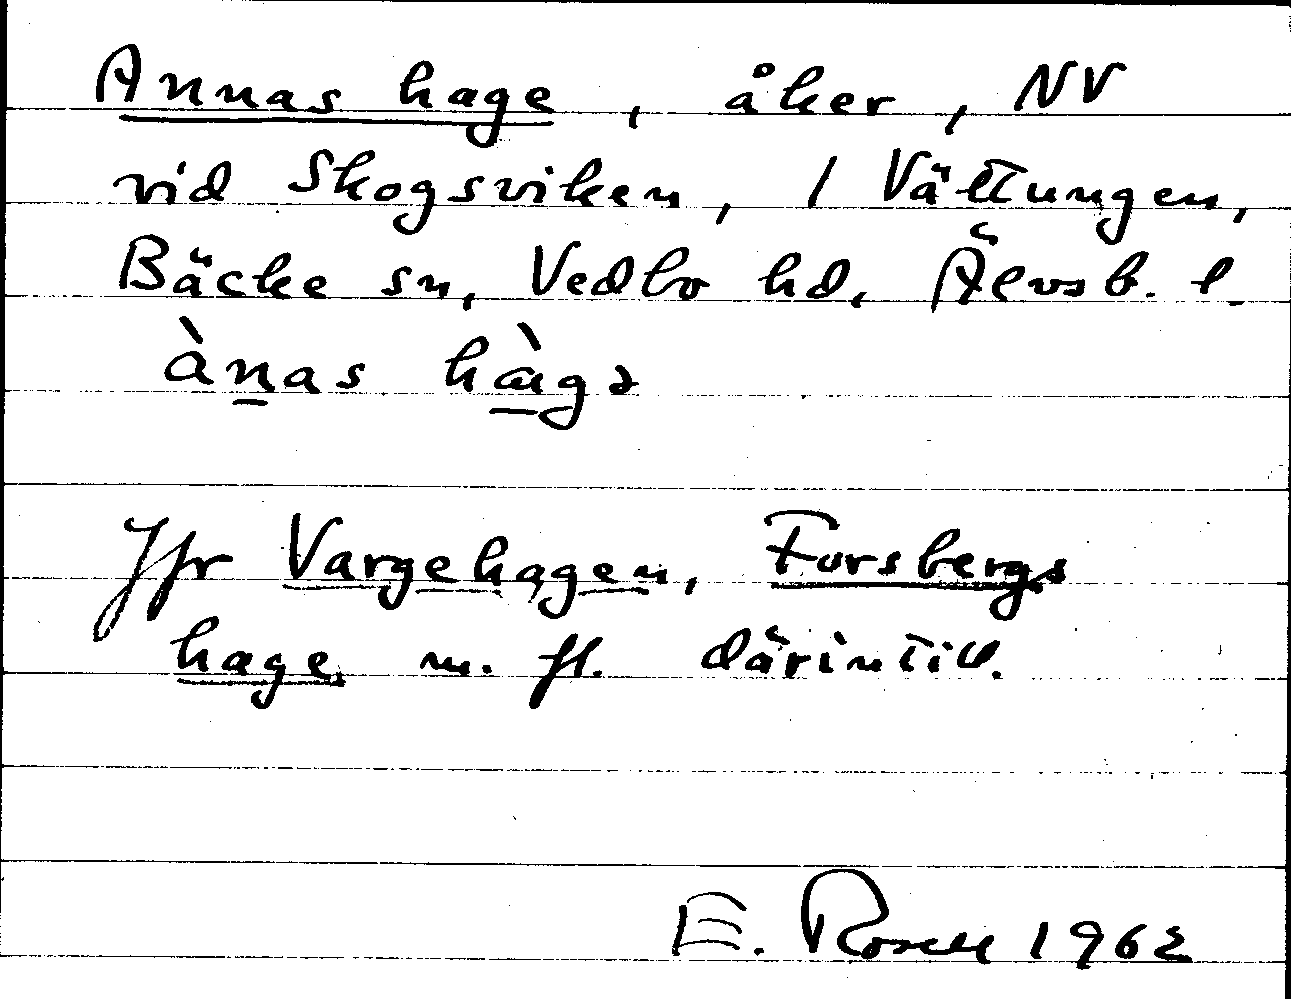 Annas hage, åker, NV
vid Skogsviken, 1 Vättungen,
Bäcke sn, Vedbo hd, Älvsb. l.
ànas hàgə
Jfr Vargehagen, Forsbergs
hage m. fl. därintill.
E. Rosell 1962